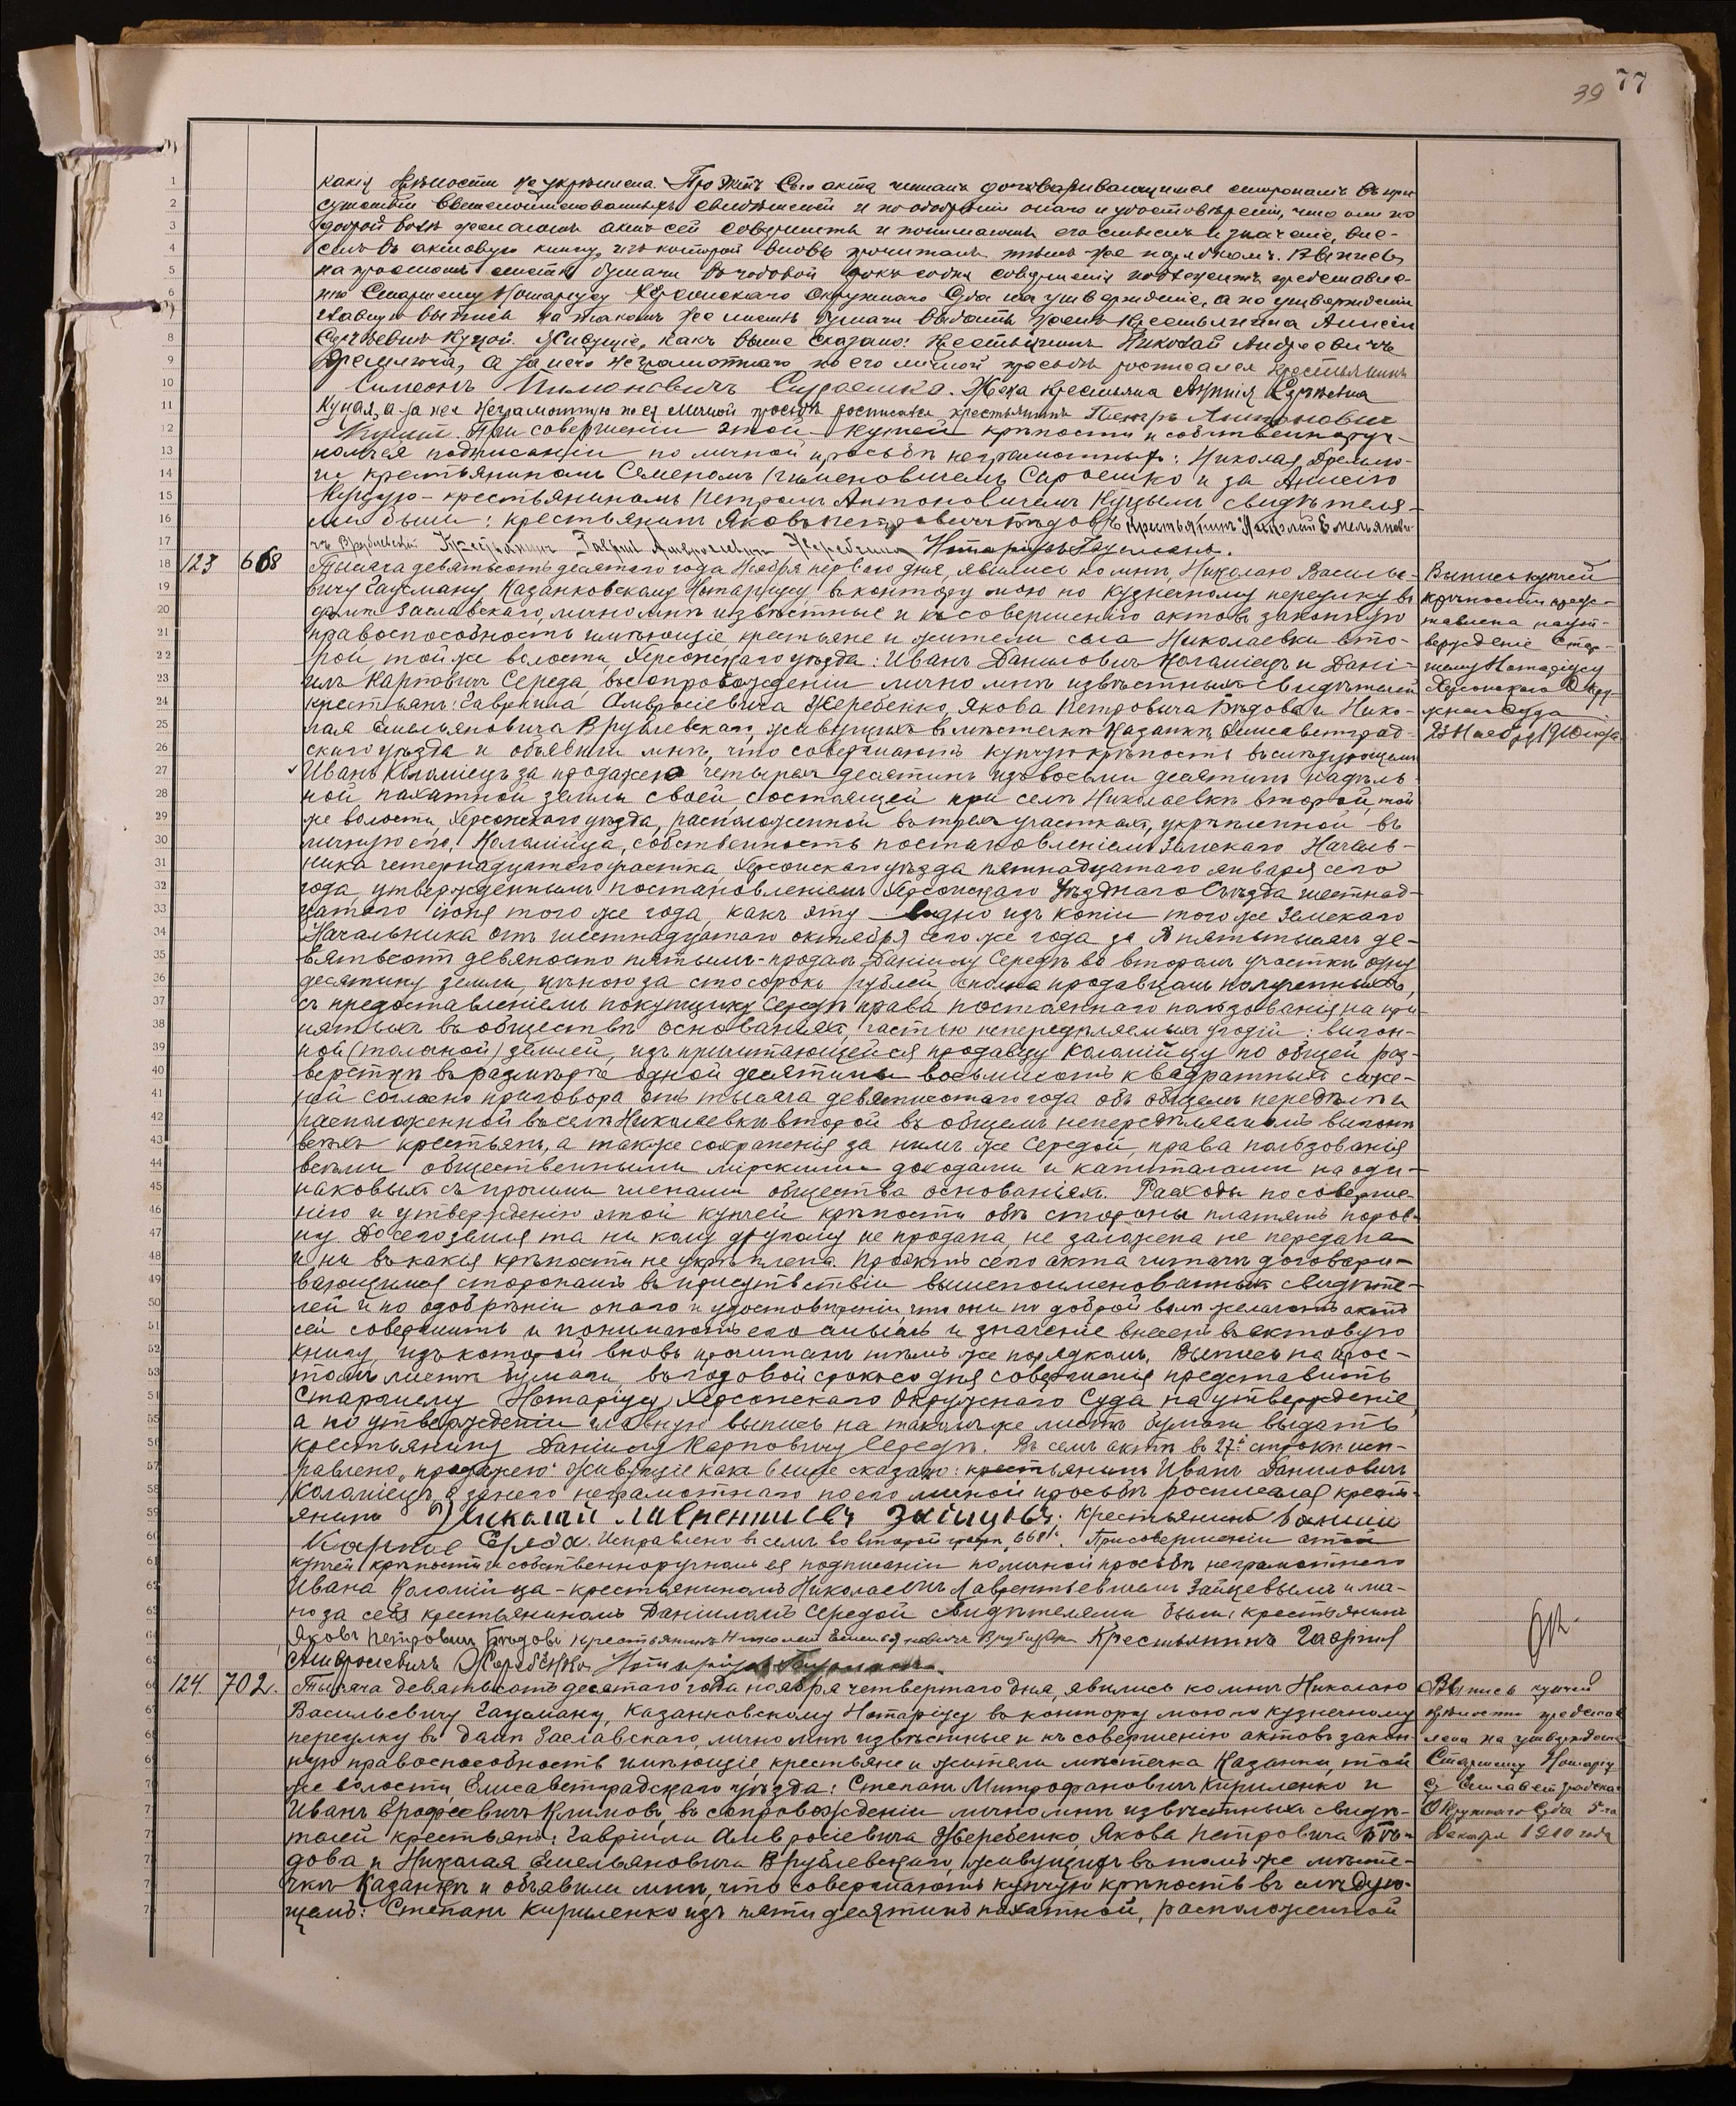 39 77
1 какія крѣпости не укрѣплена. Проэктъ сего акта читанъ договаривающимся сторонамъ въ при-
2 сутствіи вышепоименованныхъ свидѣтелей и по одобреніи онаго и удостовѣреніи, что они по
3 доброй волѣ желаютъ актъ сей совершить и понимаютъ его смыслъ и значеніе, вне-
4 сенъ въ актовую книгу, изъ которой вновь прочитанъ тѣмъ же порядкомъ. Выпись
5 на простомъ листѣ бумаги въ годовой срокъ со дня совершенія подлежитъ представле-
6 нію Старшему Нотаріусу Херсонскаго Окружнаго Суда на утвержденіе, а по утвержденіи
7 главную выпись на такомъ же листѣ бумаги выдать женѣ крестьянина Анисіи
8 Сергѣевнѣ Куцой. Живущіе, какъ выше сказано: Крестьянинъ Николай Андреевичъ
9 а за него неграмотнаго по его личной просьбѣ росписался крестьянинъ
10 Симеонъ Сыроешка. Жена крестьяна Анисія Сергѣевна
11 Куцая, а за нея неграмотную по ея личной просьбѣ росписался крестьянинъ Петръ Антоновичъ
12 Куцый. При совершеніи этой купчей крѣпости и собственноруч-
13 номъ ея подписаніи по личной просьбѣ неграмотныхъ: Николая
14 ги крестьяниномъ Семеномъ Сыроешко и за Анисію
15 Куцую - крестьяниномъ Петромъ Антоновичемъ Куцымъ свидѣтеля-
16 ми были: крестьянинъ Яковъ Петровичъ Бѣдовъ крестьянинъ Николай Емельянови-
17 чъ Врублевскій Крестьянинъ Гавріилъ Амвросіевичъ Жеребенко Нотаріусъ Гаусманъ.
18 123 668 Тысяча девятьсотъ десятаго года Ноября перваго дня, явились ко мнѣ, Николаю Василье- Выпись купчей
19 вичу Гаусману, Казанковскому Нотаріусу, въ контору мою по Кузнечному переулку въ крѣпости предс-
20 домѣ Заславскаго, лично мнѣ извѣстные и къ совершенію актовъ законную тавлена на ут-
21 правоспособность имѣющіе, крестьяне и жители села Николаевки вто- вержденіе Стар-
22 рой, той же волости, Херсонскаго уѣзда: Иванъ Даниловичъ Коломіецъ и Дані- шему Нотаріусу
23 илъ Карповичъ Середа, въ сопровожденіи лично мнѣ извѣстныхъ свидѣтелей Херсонскаго Окру-
24 крестьянъ: Гавріила Амвросіевича Жеребенко, Якова Петровича Бѣдова и Нико- жнаго Суда
25 лая Емельяновича Врублевскаго, живущихъ въ мѣстечкѣ Казанкѣ, Елисаветград- 23 Ноября 1910 года
26 скаго уѣзда и объявили мнѣ, что совершаютъ купчую крѣпость въ слѣдующемъ
27 Иванъ Коломіецъ за продажею четырехъ десятинъ изъ восьми десятинъ надѣль-
28 ной пахатной земли своей, состоящей при селѣ Николаевкѣ второй, той
29 же волости, Херсонскаго уѣзда, расположенной въ трехъ участкахъ, укрѣпленной въ
30 личную его, Коломійца, собственность постановленіемъ Земскаго Началь-
31 ника четернадцатаго участка, Херсонскаго уѣзда пятнадцатаго января сего
32 года, утвержденнымъ постановленіемъ Херсонскаго Уѣзднаго Съѣзда шестнад-
33 цатаго іюня того же года, какъ эту видно изъ копіи того же Земскаго
34 Начальника отъ шестнадцатаго октября сего же года за № пятьтысячъ де-
35 вятьсотъ девяносто пятымъ - продалъ Даніилу Середѣ во второмъ участкѣ одну
36 десятину земли, цѣною за сто сорокъ рублей, сполна продавцомъ полученныхъ,
37 съ предоставленіемъ покупщику Середѣ права постояннаго пользованія на при-
38 нятыхъ въ обществѣ основаніяхъ, частью непередѣляемыхъ угодій: выгон-
39 ной (толочной) землей, изъ причитающейся продавцу Коломійцу по общей раз-
40 верстки въ размѣрѣ одной десятины восьмисотъ квадратныхъ саже-
41 ней согласно приговора отъ тысяча девятисотаго года объ общемъ передѣлѣ и
42 расположенной въ селѣ Николаевкѣ второй въ общемъ непередѣляемомъ выгонѣ
43 всѣхъ крестьянъ, а также сохраненія за нимъ же Середой, права пользованія
44 всѣми общественными мірскими доходами и капиталами на оди-
45 наковыхъ съ прочими членами общества основаніяхъ. Расходы по соверше-
46 нію и утвержденію этой купчей крѣпости обѣ стороны платятъ поров-
47 ну. До сего земля та ни кому другому не продана, не заложена не передана
48 и ни въ какія крѣпости не укрѣплена. Проэктъ сего акта читанъ договари-
49 вающимся сторонамъ въ присутствіи вышепоименованныхъ свидѣте-
50 лей и по одобреніи онаго и удостовѣреніи, что они по доброй волѣ желаютъ актъ
51 сей совершить и понимаютъ его смыслъ и значеніе внесенъ въ актовую
52 книгу, изъ которой вновь прочитанъ тѣмъ же порядкомъ. Выпись на прос-
53 томъ листѣ бумаги, въ годовой срокъ со дня совершенія представить
54 Старшему Нотаріусу Херсонскаго Окружнаго Суда на утвержденіе,
55 а по утвержденіи главную выпись на такомъ же листѣ бумаги выдать
56 крестьянину Даніилу Карповичу Середѣ. Въ семъ актѣ въ 27й строкѣ исп-
57 равлено „продажею“ Живущіе какъ выше сказано: крестьянинъ Иванъ Даниловичъ
58 Коломіецъ, а за него неграмотнаго по его личной просьбѣ росписался крест-
59 янинъ Николай Лаврентиевъ Заицувъ. Крестьянинъ Даніил
60 Карпов Ереда. Исправлено въ семъ во второй графѣ „668“. При совершеніи этой
61 купчей крѣпости и собственноручномъ ея подписаніи по личной просьбѣ неграмотнаго
62 Ивана Коломійца - крестьяниномъ Николаемъ Лаврентьевичемъ Зайцевымъ и ма-
63 но за себя крестьяниномъ Даніиломъ Середой свидѣтелями были: крестьянинъ
64 Яковъ Петровичъ Бѣдовъ крестьянинъ Николай Емельяновичъ Врублевскій Крестьянинъ Гавріил
65 Амвросіевичъ Жеребенко Нотаріусъ Гаусманъ.
66 124. 702. Тысяча девятьсотъ десятаго года ноября четвертаго дня, явились ко мнѣ Николаю Выпись купчей
67 Васильевичу Гаусману, Казанковскому Нотаріусу въ контору мою по Кузнечному крѣпости представ
68 переулку въ домѣ Заславскаго, лично мнѣ извѣстные и къ совершенію актовъ закон- лена на утвержденіе
69 ную правоспособность имѣющіе, крестьяне и жители мѣстечка Казанки, той Старшему Нотаріу
70 же волости, Елисаветградскаго уѣзда: Степанъ Митрофановичъ Кириленко и су Елисаветградскаго
71 Иванъ Ерофеевичъ Климовъ, въ сопровожденіи лично мнѣ извѣстныхъ свидѣ- Окружнаго Суда 5го
72 телей крестьянъ: Гавріила Амвросіевича Жеребенко, Якова Петровича Бѣ- Декабря 1910 года
дова и Николая Емельяновича Врублевскаго, живущихъ въ томъ же мѣсте-
чкѣ Казанкѣ и объявили мнѣ, что совершаютъ купчую крѣпость въ слѣдую-
щемъ: Степанъ Кириленко изъ пяти десятинъ пахатной, расположенной